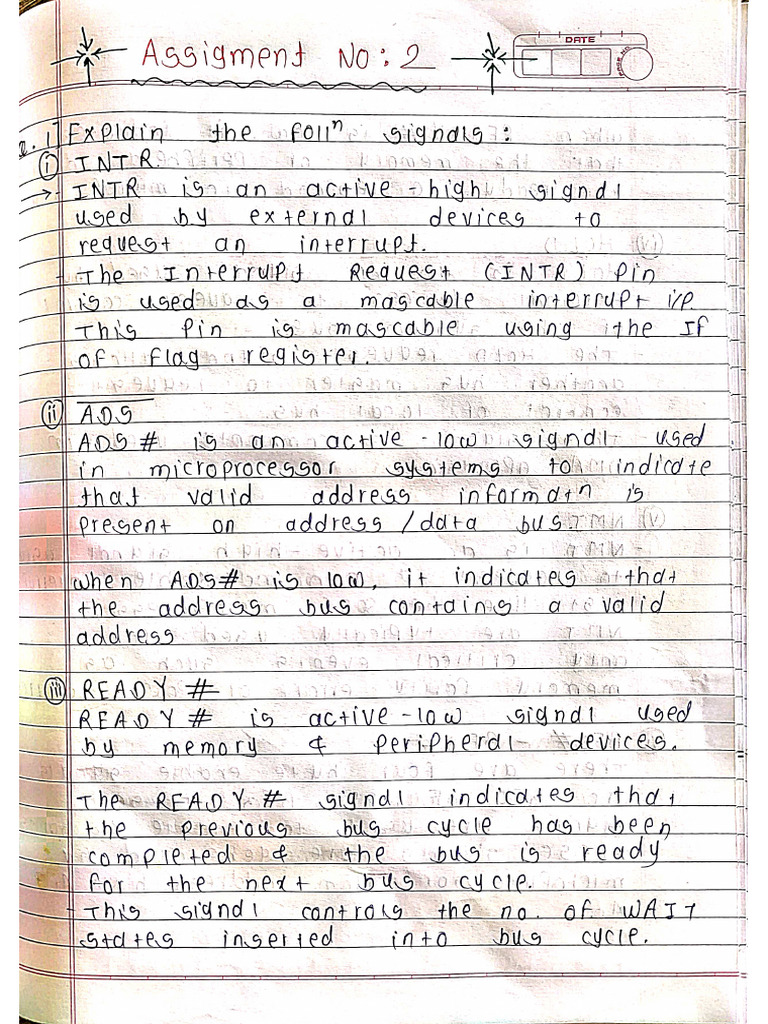 Assigment No: 2
DATE
PAGE NO.
Q. 1] Explain the follⁿ signals:
(i) INTR.
→ INTR is an active-high signal
used by external devices to
request an interrupt.
- The Interrupt Request (INTR) Pin
is used as a mascable interrupt i/p.
This Pin is mascable using the If
of flag register.
(ii) A̅D̅S̅
ADS # is an active-low signal used
in microprocessor systems to indicate
that valid address informatⁿ is
present on address/data bus.
when ADS# is low, it indicates that
the address bus contains a valid
address
(iii) READY #
READY # is active-low signal used
by memory & peripheral devices.
The READY # signal indicates that
the previous bus cycle has been
completed & the bus is ready
for the next bus cycle.
- This signal controls the no. of WAIT
states inserted into bus cycle.